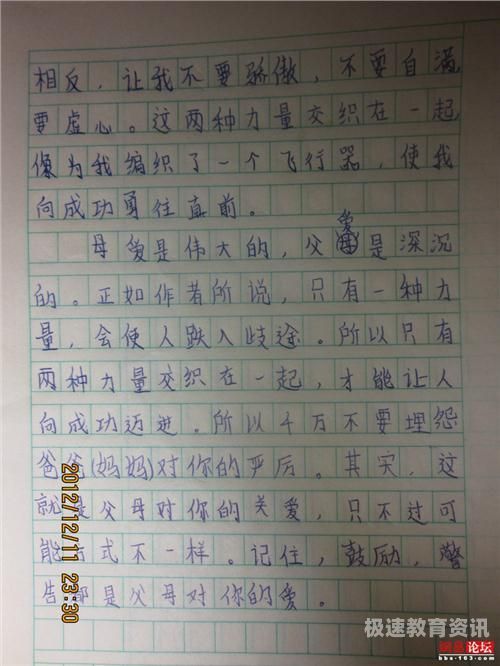 相反，让我不要骄傲，不要自满
要虚心。这两种力量交织在一起
像为我编织了一个飞行器，使我
向成功勇往直前。
母爱是伟大的，父爱是深沉
的。正如作者所说，只有一种力
量，会使人跌入歧途。所以只有
两种力量交织在一起，才能让人
向成功迈进。所以千万不要埋怨
爸爸(妈妈)对你的严厉。其实，这
就是父母对你的关爱，只不过可
能方式不一样。记住，鼓励，警
告都是父母对你的爱。
2012/12/11 23:30
极速教育资讯
网易论坛
bbs.163.com